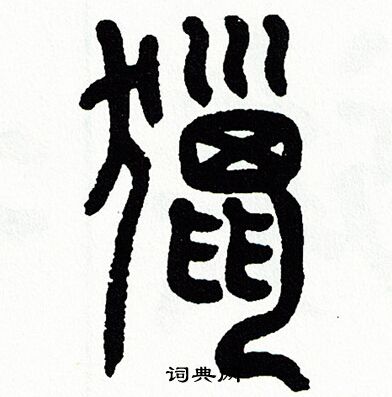 獵
词典网